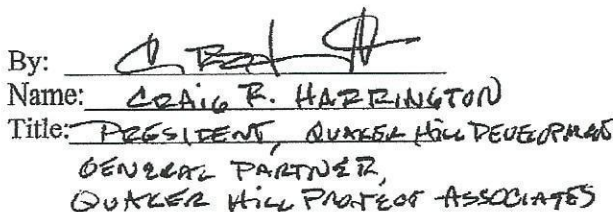 By:
Name: CRAIG R. HARRINGTON
Title: PRESIDENT, QUAKER HILL DEVELOPMENT
GENERAL PARTNER,
QUAKER HILL PROJECT ASSOCIATES